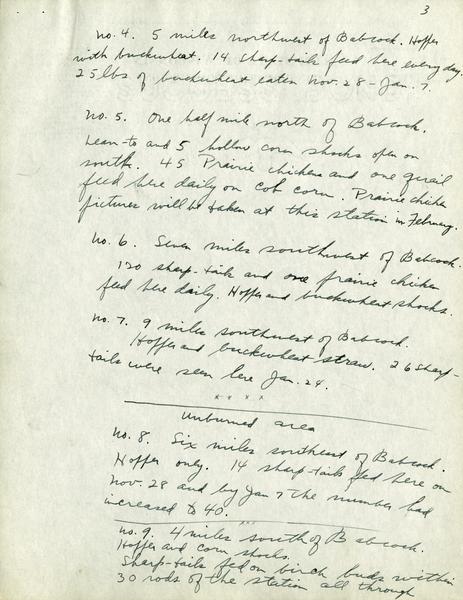 3
no. 4. 5 miles northwest of Babcock. Hopper
with buckwheat. 14 sharp-tails feed here every day.
25 lbs of buckwheat eaten Nov. 28 - Jan. 7.
no. 5. One half mile north of Babcock.
Lean-to and 5 hollow corn shocks open on
south. 45 Prairie chickens and one quail
feed here daily on cob corn. Prairie chicken
pictures will be taken at this station in February.
no. 6. Seven miles southwest of Babcock.
120 sharp-tails and one prairie chicken
feed here daily. Hopper and buckwheat shocks.
no. 7. 9 miles southwest of Babcock.
Hopper and buckwheat straw. 26 sharp-
tails were seen here Jan. 24.
x x x x
Unburned area
no. 8. Six miles southeast of Babcock.
Hopper only. 14 sharp-tails feed here on
Nov. 28 and by Jan 7 the number had
increased to 40.
x x x
no. 9. 4 miles south of Babcock.
Hopper and corn shocks.
Sharp-tails fed on birch buds within
30 rods of the station all through